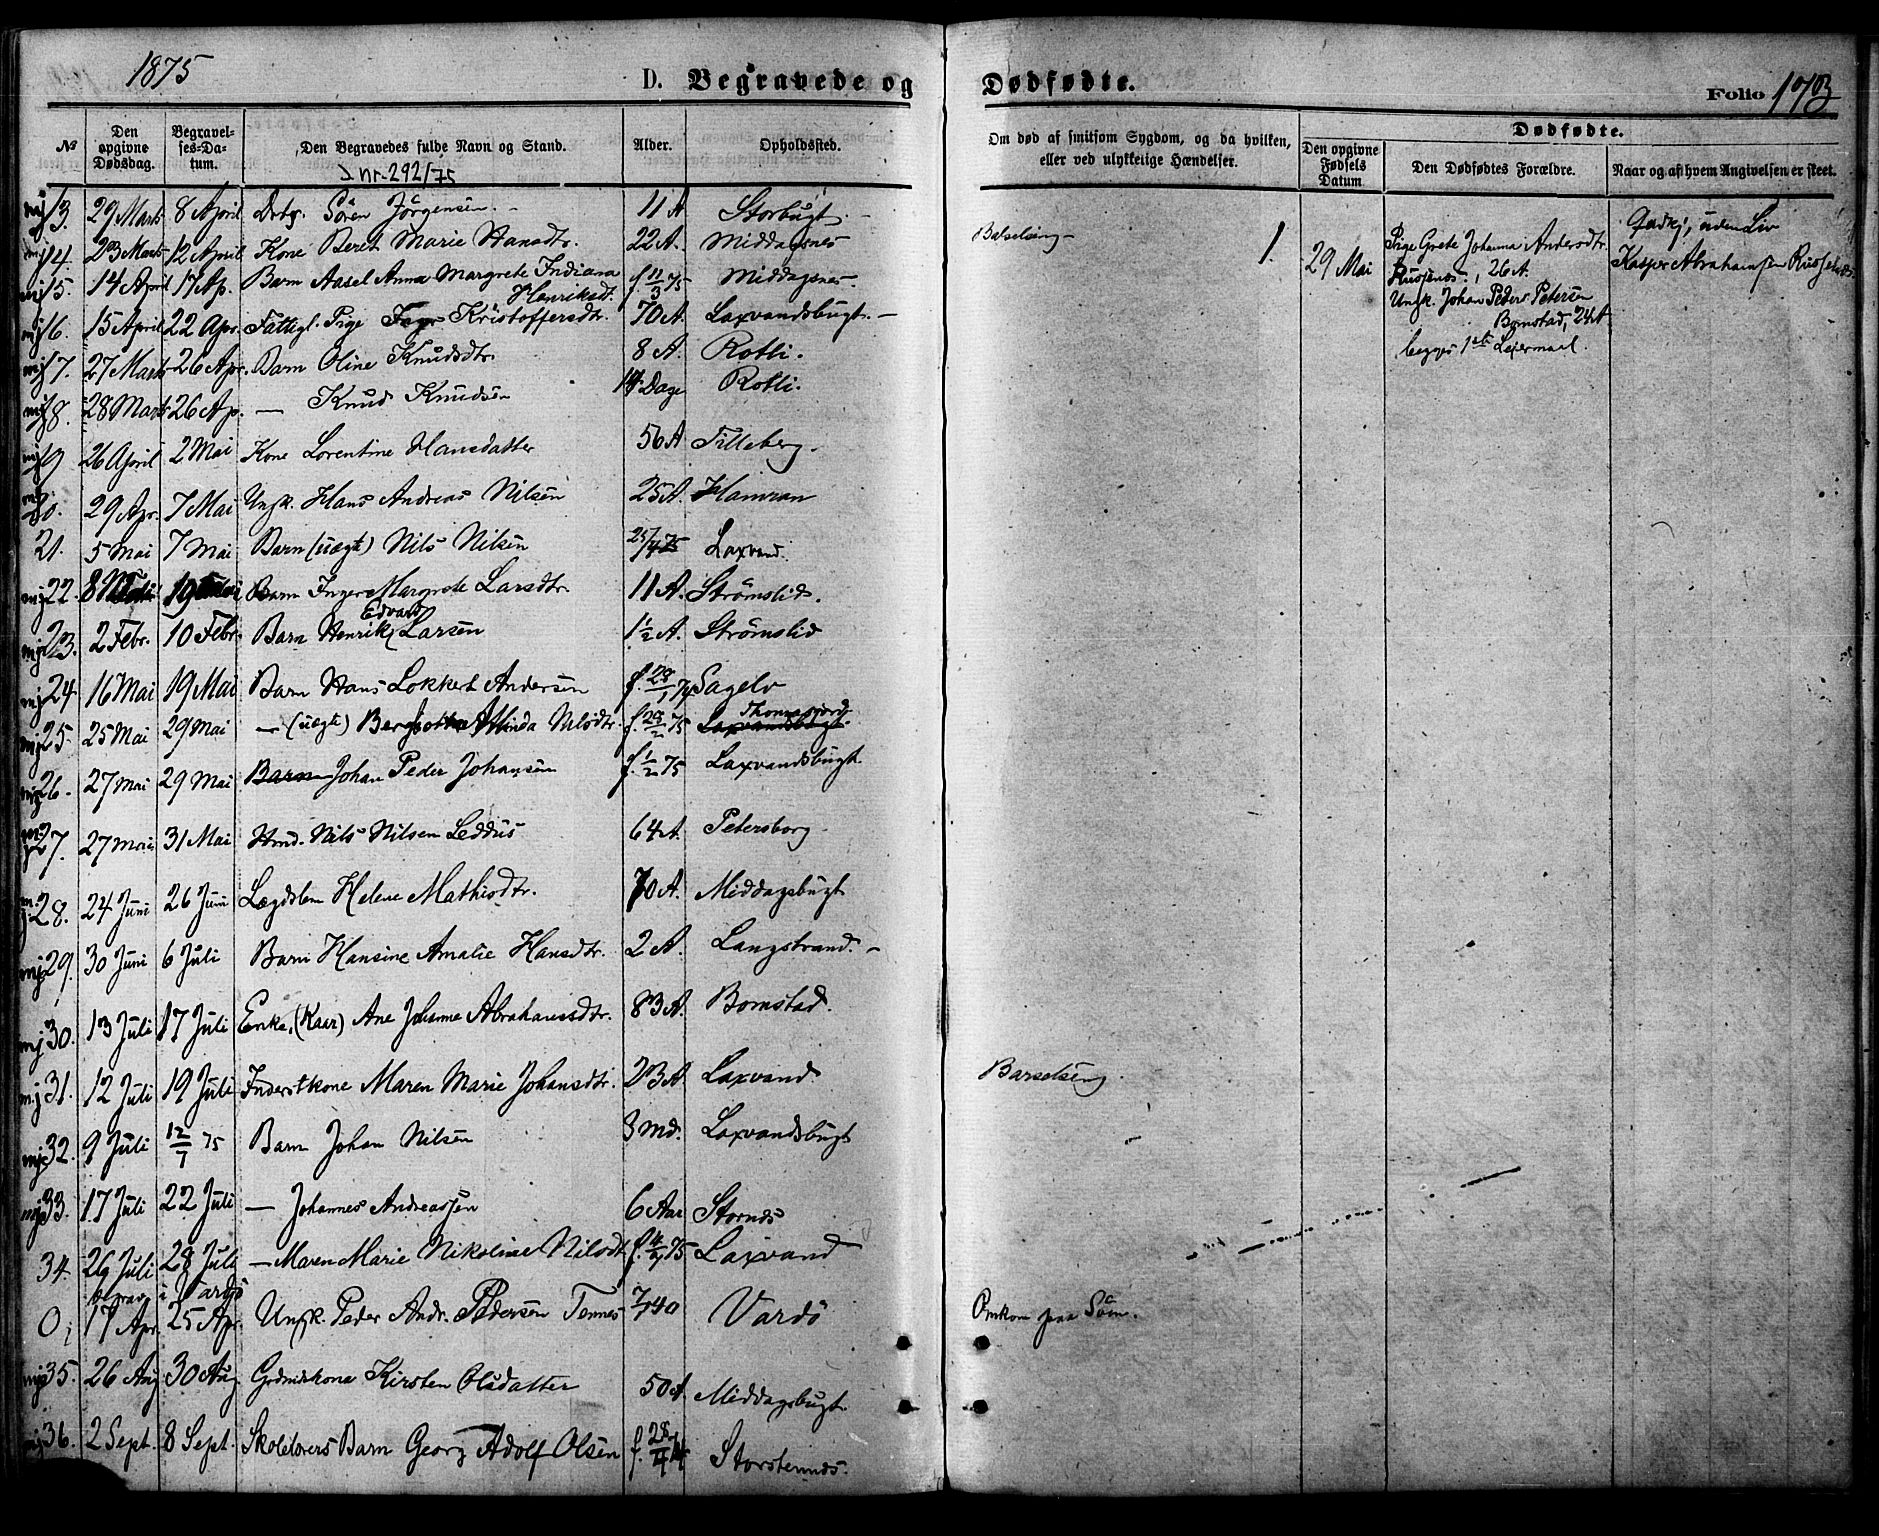 1875
D. Begravede og Dødfødte.
Folio 173
№ Den opgivne Dødsdag. Begravelses-Datum. Den Begravedes fulde Navn og Stand. Alder. Opholdssted. Om død af smitsom Sygdom, og da hvilken, eller ved ulykkelige Hændelser.
Dødfødte.
Den opgivne Fødsels Datum Den Dødfødtes Forældre. Naar og af hvem Angivelsen er skeet.
J nr. 292/75
13. 29 Marts 8 April Sören Jörgensen 11 A Storbugt.
14. 23 Marts 12 April Kone Beret Marie Hansdtr. 22 A. Middagsnes
15. 14 April 17 Ap. Barn Aasel Anna Margrete Indiana Henriksdt. f. 11/3 75 Middagsnes
16. 15 April 22 Apr. Fattigl. Pige Kristoffersdtr. 70 A. Laxvandsbugt.
17. 27 Marts 26 Apr. Barn Oline Knudsdtr. 8 A. Rotli.
18. 28 Marts 26 Ap. — Knud Knudsen 14 Dage Rotli.
19 26 April 2 Mai Kone Lorentine Hansdatter 56 A Tilleberg.
20. 29 Apr. 7 Mai Ungk. Hans Andreas Nilsen 25 A. Hamran
21. 5 Mai 7 Mai Barn (uægte) Nils Nilsen 25/4 75 Laxvand.
22. 8 19 Barn Inger Margrete Larsdtr. 11 A. Strömslid.
23. 2 Febr. 10 Febr. Barn Henrik Edvard Larsen 1½ A. Strömslid
24 16 Mai 19 Mai Barn Hans Lokkert Andersen f. 28/1 74 Sagelv
25. 25 Mai 29 Mai — (uægte) Minda Nilsdtr. f. 20/2 75 Laxvandsbugt. Thomasjord
26. 27 Mai 29 Mai Barn Johan Peder Johansen f. 1/2 75 Laxvandsbugt
27. 27 Mai 31 Mai Hmd. Nils Nilsen Leddus 64 A. Petersborg
28. 24 Juni 26 Juni Lægdslem Helene Mathisdtr. 70 A. Middagsbugt
29. 30 Juni 6 Juli Barn Hansine Amalie Hansdtr. 2 A. Langstrand.
30. 13 Juli 17 Juli Enke, (Kaar) Ane Johanne Abrahamsdtr. 83 A. Bomstad.
31. 12 Juli 19 Juli Inderstkone Maren Marie Johansdtr. 23 A. Laxvand. Barselseng
32. 9 Juli 12/7 75 Barn Johan Nilsen 3 Md. Laxvandsbugt
33. 17 Juli 22 Juli — Johannes Andreassen 6 Aar Stornes
34. 26 Juli 28 Juli — Maren Marie Nikoline Nilsdt. f. 4/2 75 Laxvand
begrav. i Vardö
0 17 Apr. 25 Apr Ungk. Peder Andr. Pedersen Tennes 7/7 40 Vardö Omkom paa Söen.
35. 26 Aug 30 Aug Grdmdskone Kirsten Olsdatter 50 A Middagsbugt.
36. 2 Sept. 8 Sept. Skolelærers Barn Georg Adolf Olsen f. 28/4 74 Storstennes.
Barselseng
1. 29 Mai Pige Grete Johanna Andersdtr.
26 A.
Ungk. Johan Peder Petersen
Bomstad, 24 A
begges 1ste Leiermaal.
Gudkj, uden Liv
Kasper Abrahamsen